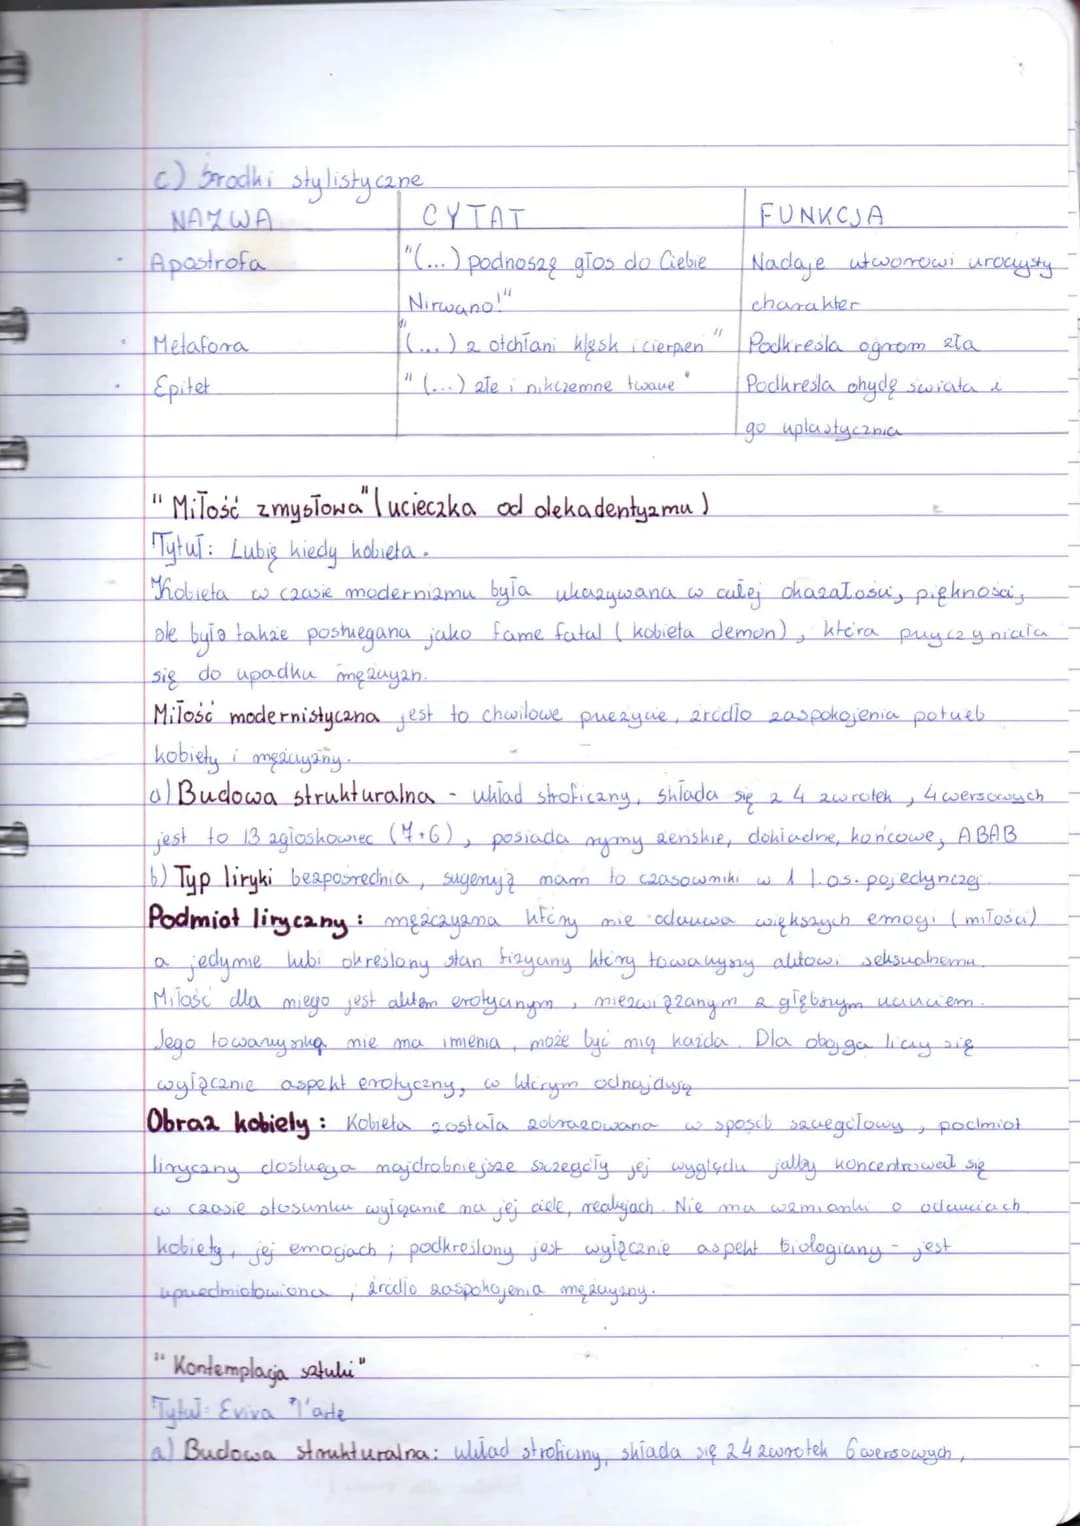 c) środki stylistyczne
NAZWA CYTAT FUNKCJA
• Apostrofa "(...) podnoszę głos do Ciebie Nadaje utworowi uroczysty
Nirwano!" charakter
• Metafora "(...) z otchłani klęsk i cierpień" Podkreśla ogrom zła
• Epitet "(...) złe i nikczemne twarze" Podkreśla ohydę świata i
go uplastycznia
"Miłość zmysłowa" (ucieczka od dekadentyzmu)
Tytuł: Lubię kiedy kobieta.
Kobieta w czasie modernizmu była ukazywana w całej okazałości, piękności,
ale była także postrzegana jako fame fatal (kobieta demon), która przyczyniała
się do upadku mężczyzn.
Miłość modernistyczna jest to chwilowe przeżycie, źródło zaspokojenia potrzeb
kobiety i mężczyzny.
a) Budowa strukturalna - układ stroficzny, składa się z 4 zwrotek, 4 wersowych
jest to 13 zgłoskowiec (7+6), posiada rymy żeńskie, dokładne, końcowe, ABAB
b) Typ liryki bezpośrednia, sugerują nam to czasowniki w 1 l. os. pojedynczej
Podmiot liryczny: mężczyzna który nie odczuwa większych emocji (miłości)
a jedynie lubi określony stan fizyczny który towarzyszy aktowi seksualnemu.
Miłość dla niego jest aktem erotycznym, niezwiązanym z głębszym uczuciem.
Jego towarzyszka nie ma imienia, może być nią każda. Dla obojga liczy się
wyłącznie aspekt erotyczny, w którym odnajdują
Obraz kobiety: Kobieta została zobrazowana w sposób szczegółowy, podmiot
liryczny dostrzega najdrobniejsze szczegóły jej wyglądu jakby koncentrował się
w czasie stosunku wyłącznie na jej ciele, reakcjach. Nie ma wzmianki o odczuciach
kobiety, jej emocjach; podkreślony jest wyłącznie aspekt biologiczny - jest
uprzedmiotowiona, źródło zaspokojenia mężczyzny.
"Kontemplacja sztuki"
Tytuł: Eviva l'arte
a) Budowa strukturalna: układ stroficzny, składa się z 4 zwrotek 6 wersowych,